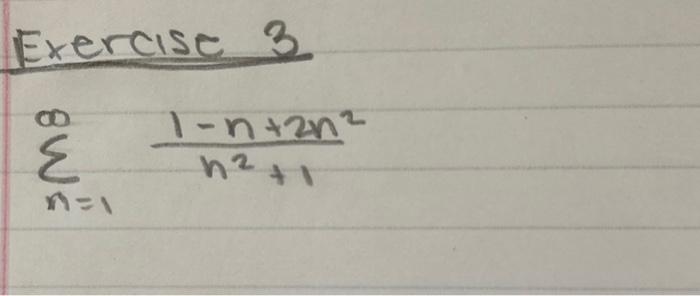 Exercise 3
∞
Σ
n=1
1-n+2n²
n²+1